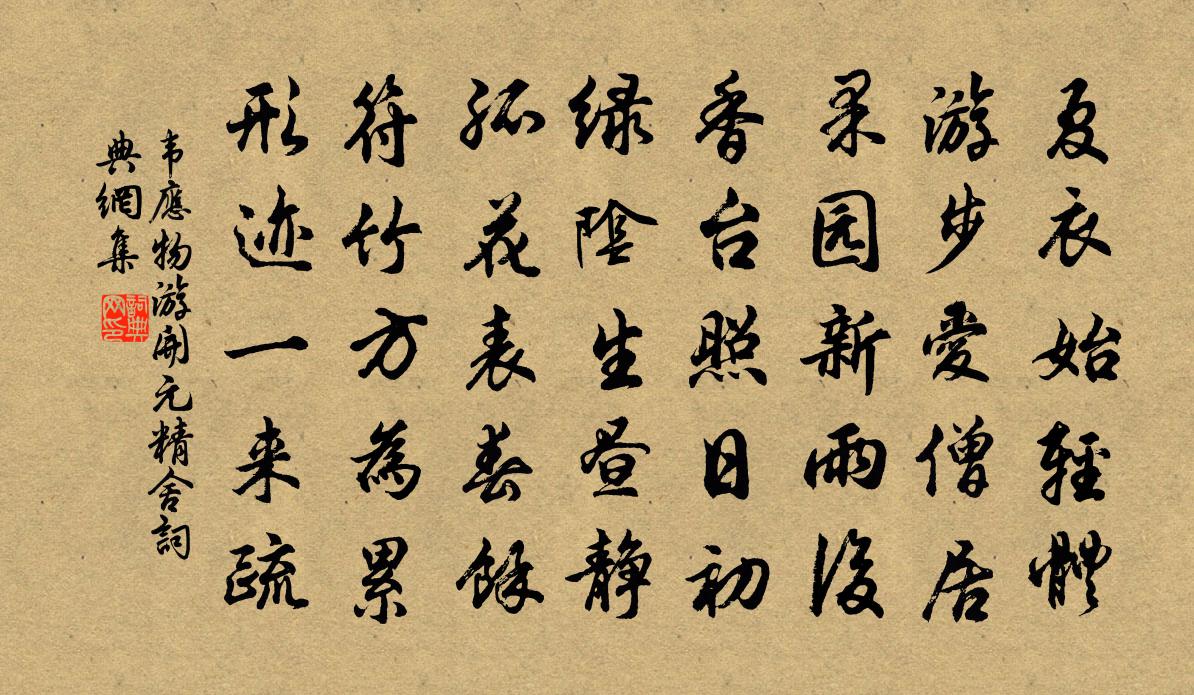 夏衣始輕體
游步愛僧居
果园新雨後
香台照日初
绿陰生昼静
孤花表春餘
符竹方為累
形迹一来疏
韦應物游開元精舍詞
典網集
詞典
网印